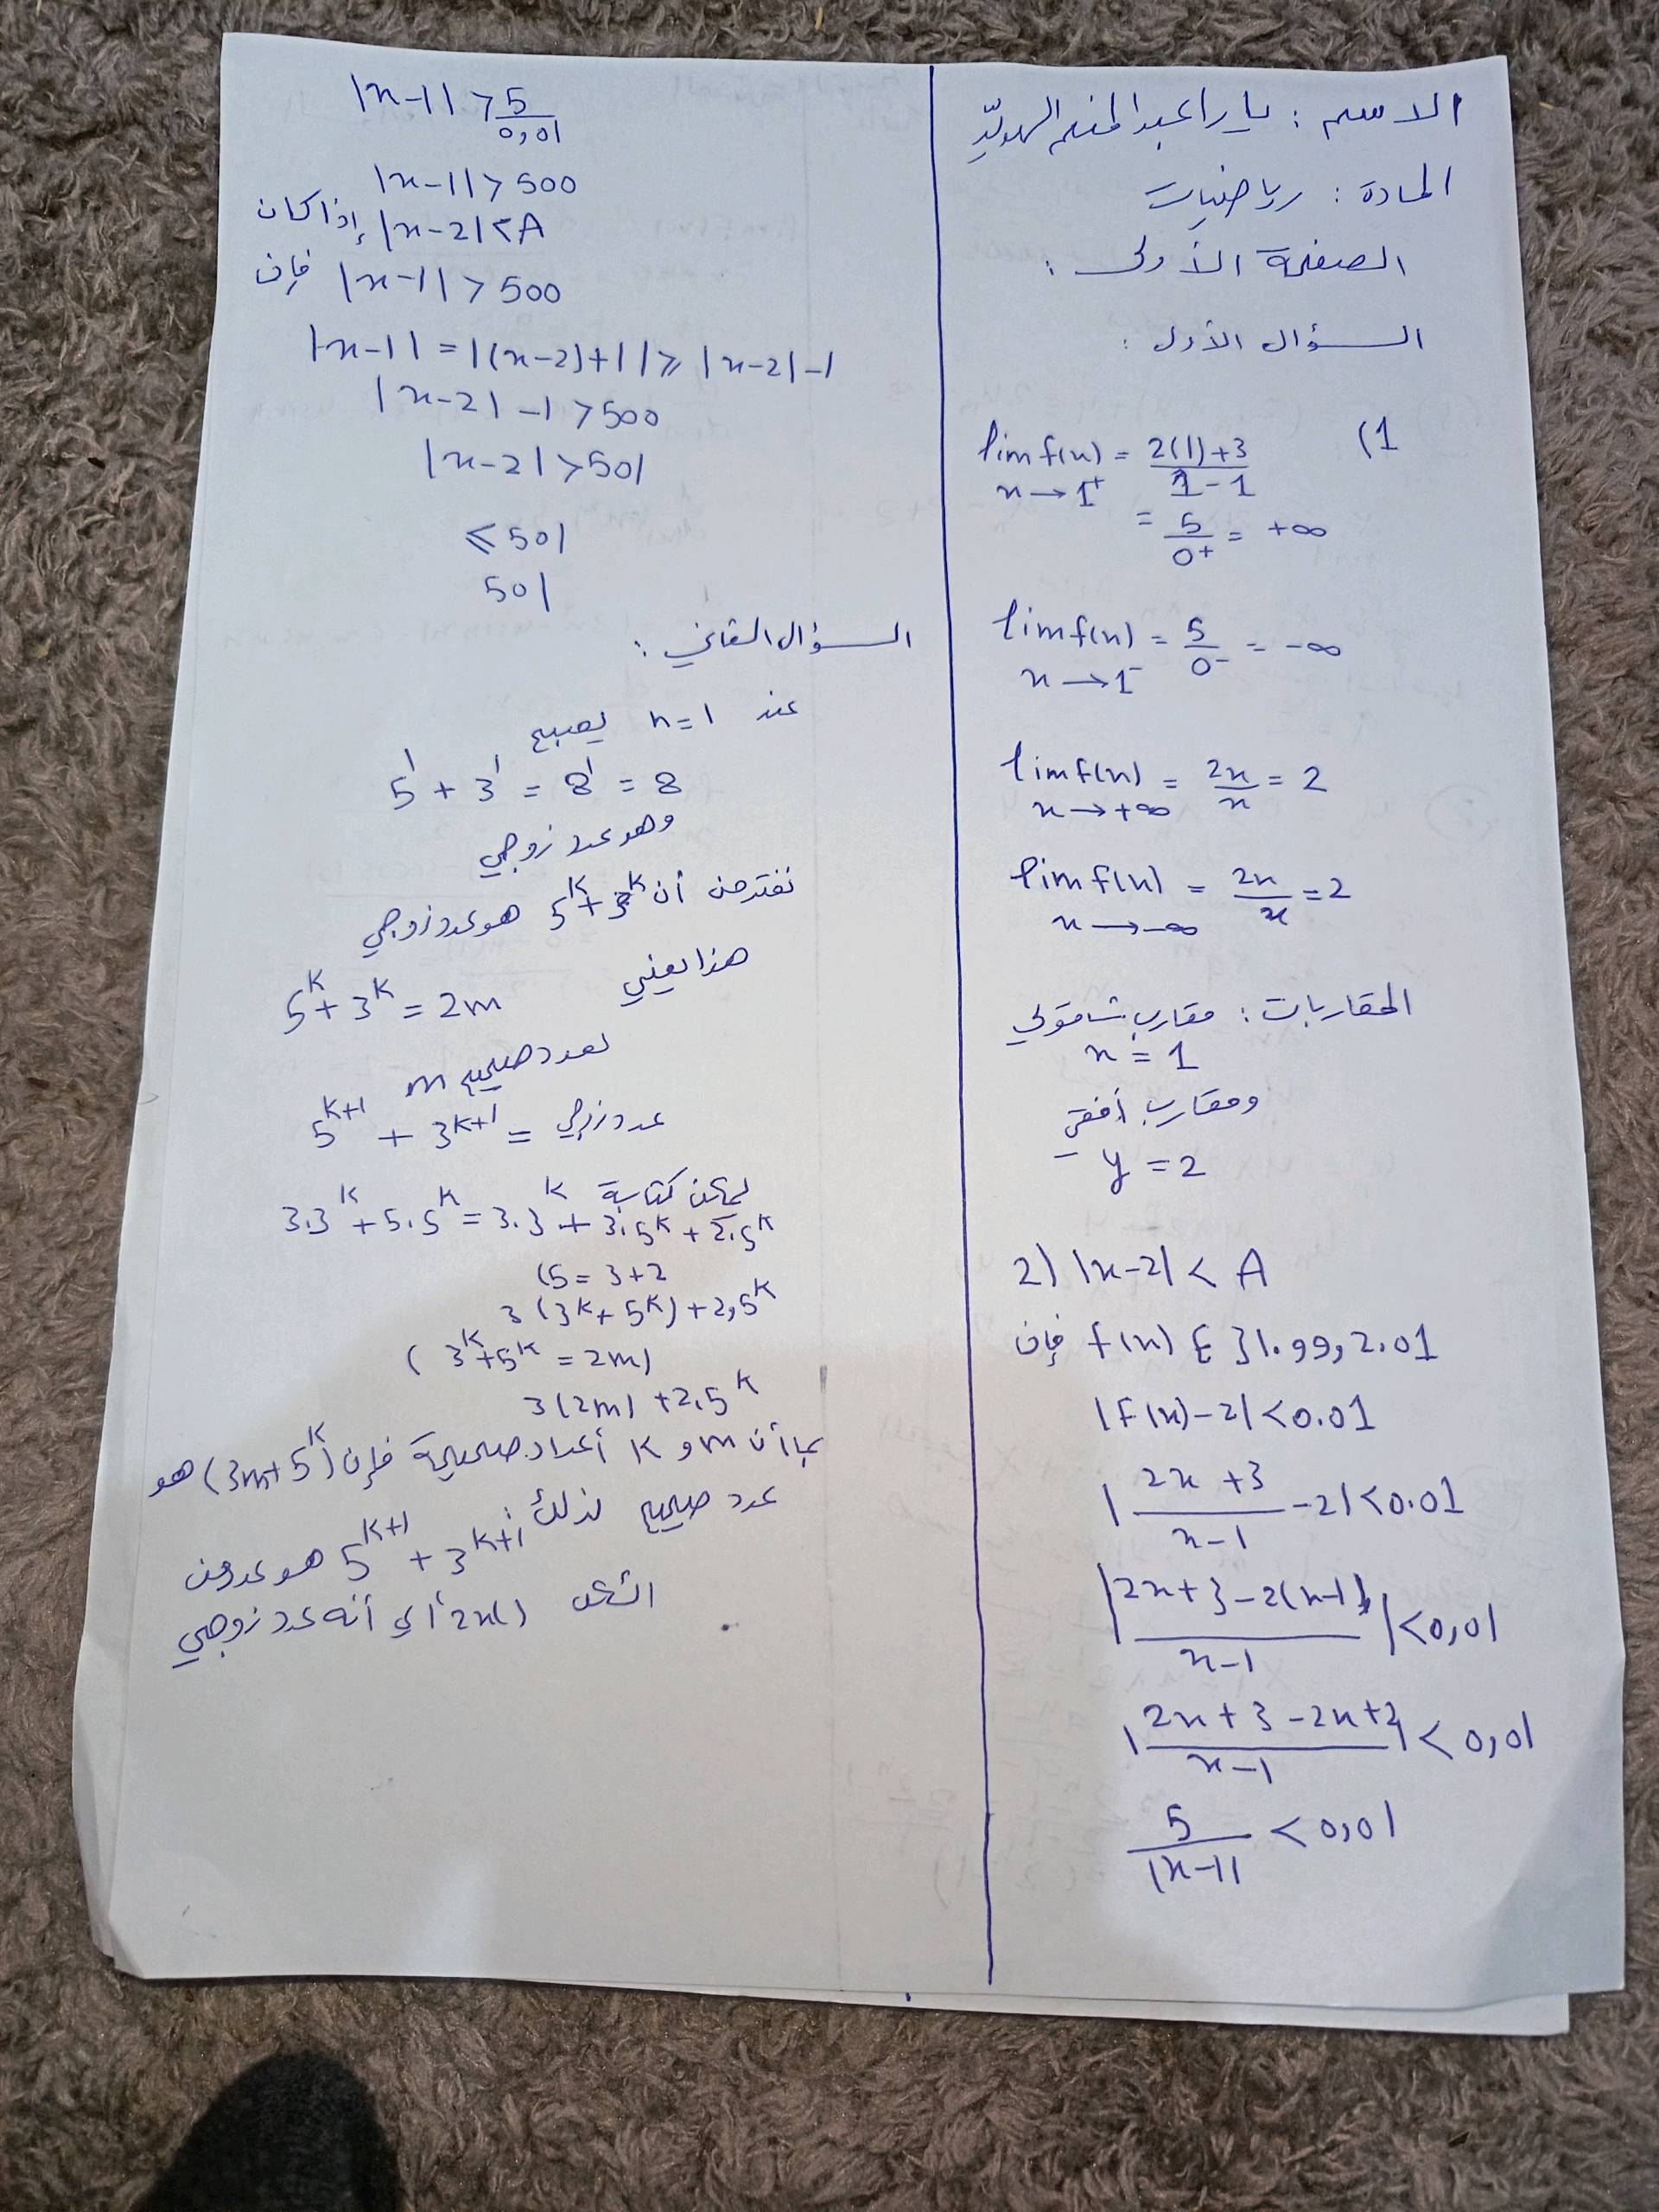 الاسم : يارا عبد المنعم
المادة : رياضيات
الصفحة الأولى :
السؤال الأول :
1) lim f(x) = 2(1)+3 / 1-1
x → 1⁺
= 5/0⁺ = +∞
lim f(x) = 5/0⁻ = -∞
x → 1⁻
lim f(x) = 2x/x = 2
x → +∞
lim f(x) = 2x/x = 2
x → -∞
المقاربات : مقارب شاقولي
x = 1
ومقارب أفقي
y = 2
2) |x-2| < A
فإن f(x) ∈ ]1.99, 2.01
|f(x)-2| < 0.01
| 2x+3 / x-1 - 2| < 0.01
| 2x+3-2(x-1) / x-1 | < 0,01
| 2x+3-2x+2 / x-1 | < 0,01
5 / |x-1| < 0,01
|x-1| > 5 / 0,01
|x-1| > 500
إذا كان |x-2| < A
فإن |x-1| > 500
|x-1| = |(x-2)+1| ⩾ |x-2|-1
|x-2| -1 > 500
|x-2| > 501
⩽ 501
501
السؤال الثاني :
عند n=1 يصبح
5¹ + 3¹ = 8¹ = 8
وهو عدد زوجي
نفترض أن 5ᵏ+3ᵏ هو عدد زوجي
هذا يعني 5ᵏ+3ᵏ = 2m
لعدد صحيح m
5ᵏ⁺¹ + 3ᵏ⁺¹ = عدد زوجي
يمكن كتابة
3.3ᵏ + 5.5ᵏ = 3.3ᵏ + 3.5ᵏ + 2.5ᵏ
(5 = 3+2
3 (3ᵏ + 5ᵏ) + 2,5ᵏ
( 3ᵏ+5ᵏ = 2m)
3(2m) + 2.5ᵏ
بما أن m و k أعداد صحيحة فإن (3m+5ᵏ) هو
عدد صحيح لذلك 5ᵏ⁺¹ + 3ᵏ⁺¹ هو عدد من
الشكل 2x() أي أنه عدد زوجي